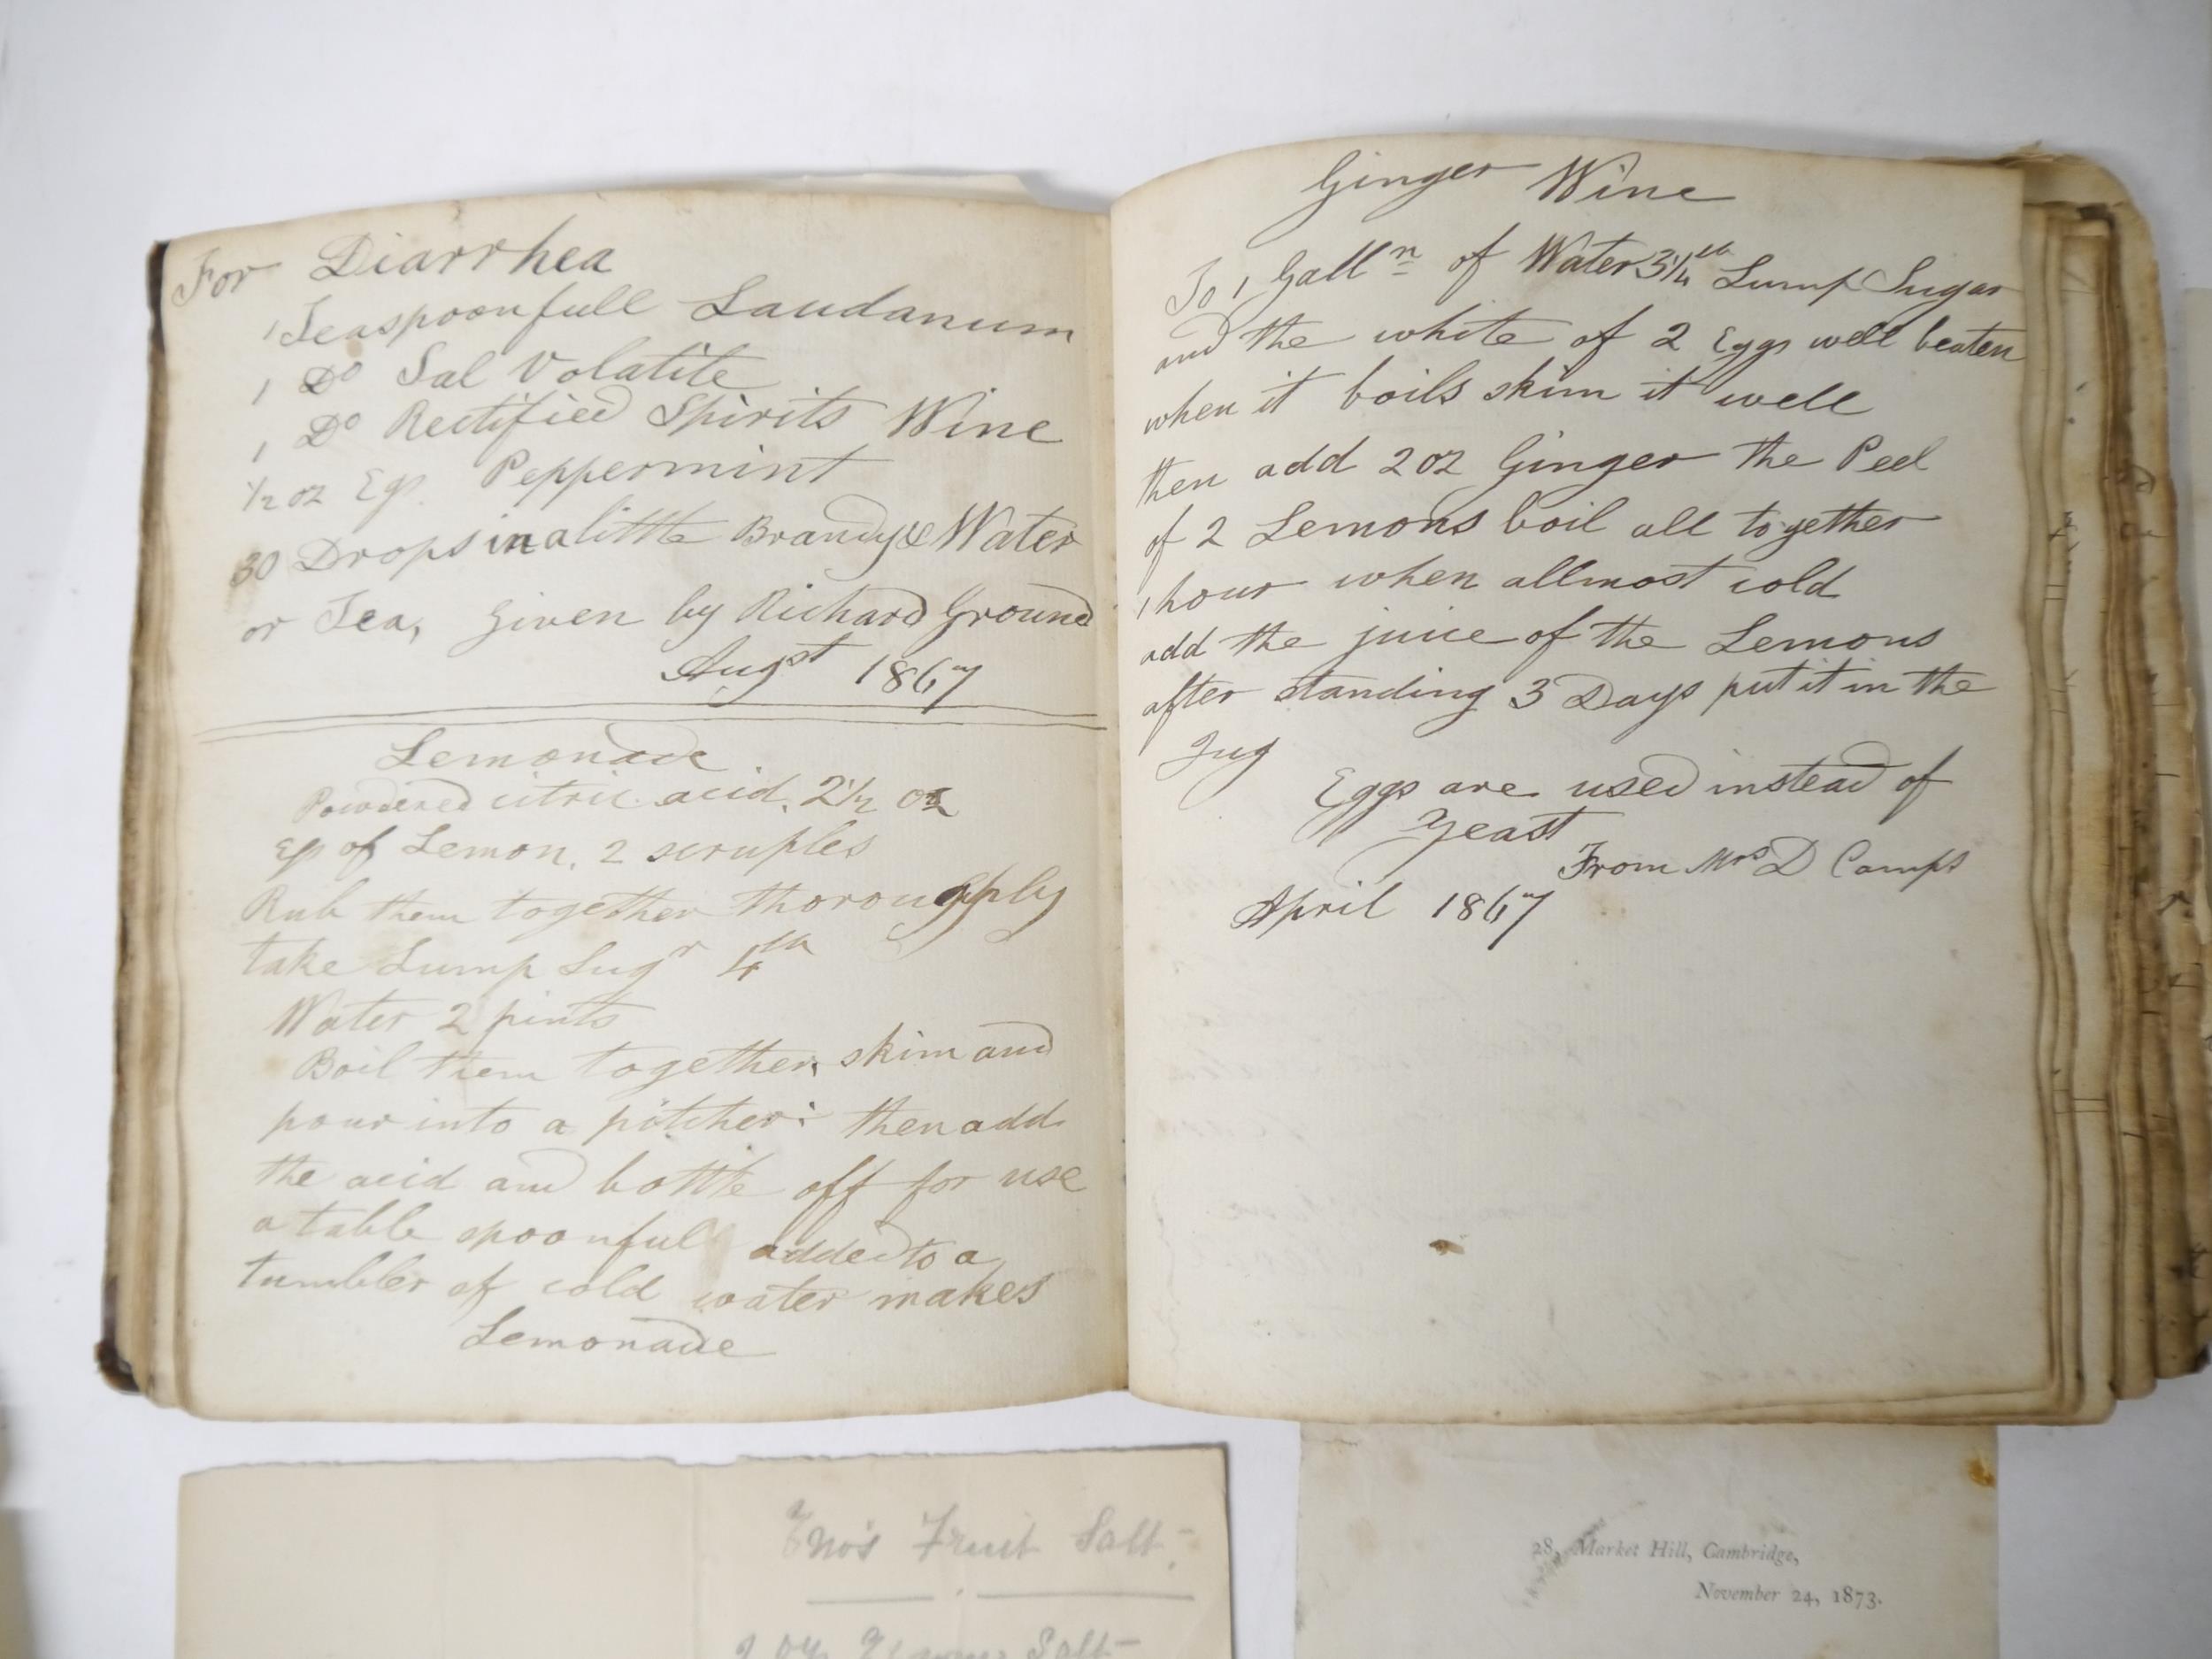 For Diarrhea
1 Teaspoonfull Laudanum
1 Do Sal Volatile
1 Do Rectified Spirits Wine
1/2 oz Ess. Peppermint
30 Drops in a little Brandy & Water
or Tea, Given by Richard Ground
Augst 1867
Lemonade
Powdered citric acid. 2 1/2 oz
Ess of Lemon. 2 scruples
Rub them together thoroughly
take Lump Sugr 4 lb
Water 2 pints
Boil them together, skim and
pour into a pitcher: then add
the acid and bottle off for use
a table spoonful added to a
tumbler of cold water makes
Lemonade
Ginger Wine
To 1 Galln of Water 3 1/4 lb Lump Sugar
and the white of 2 Eggs well beaten
when it boils skim it well
then add 2 oz Ginger the Peel
of 2 Lemons boil all together
1 hour when allmost cold
add the juice of the Lemons
after standing 3 Days put it in the
Jug
Eggs are used instead of
Yeast
From Mrs D Camps
April 1867
Eno's Fruit Salt
Salt
28, Market Hill, Cambridge,
November 24, 1873.